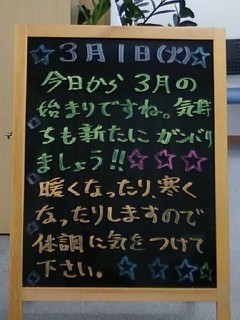 ☆3月1日(火)☆
今日から3月の
始まりですね。気持
ちも新たにガンバり
ましょう!!☆☆☆
暖くなったり、寒く
なったりしますので
体調に気をつけて
下さい。☆☆☆